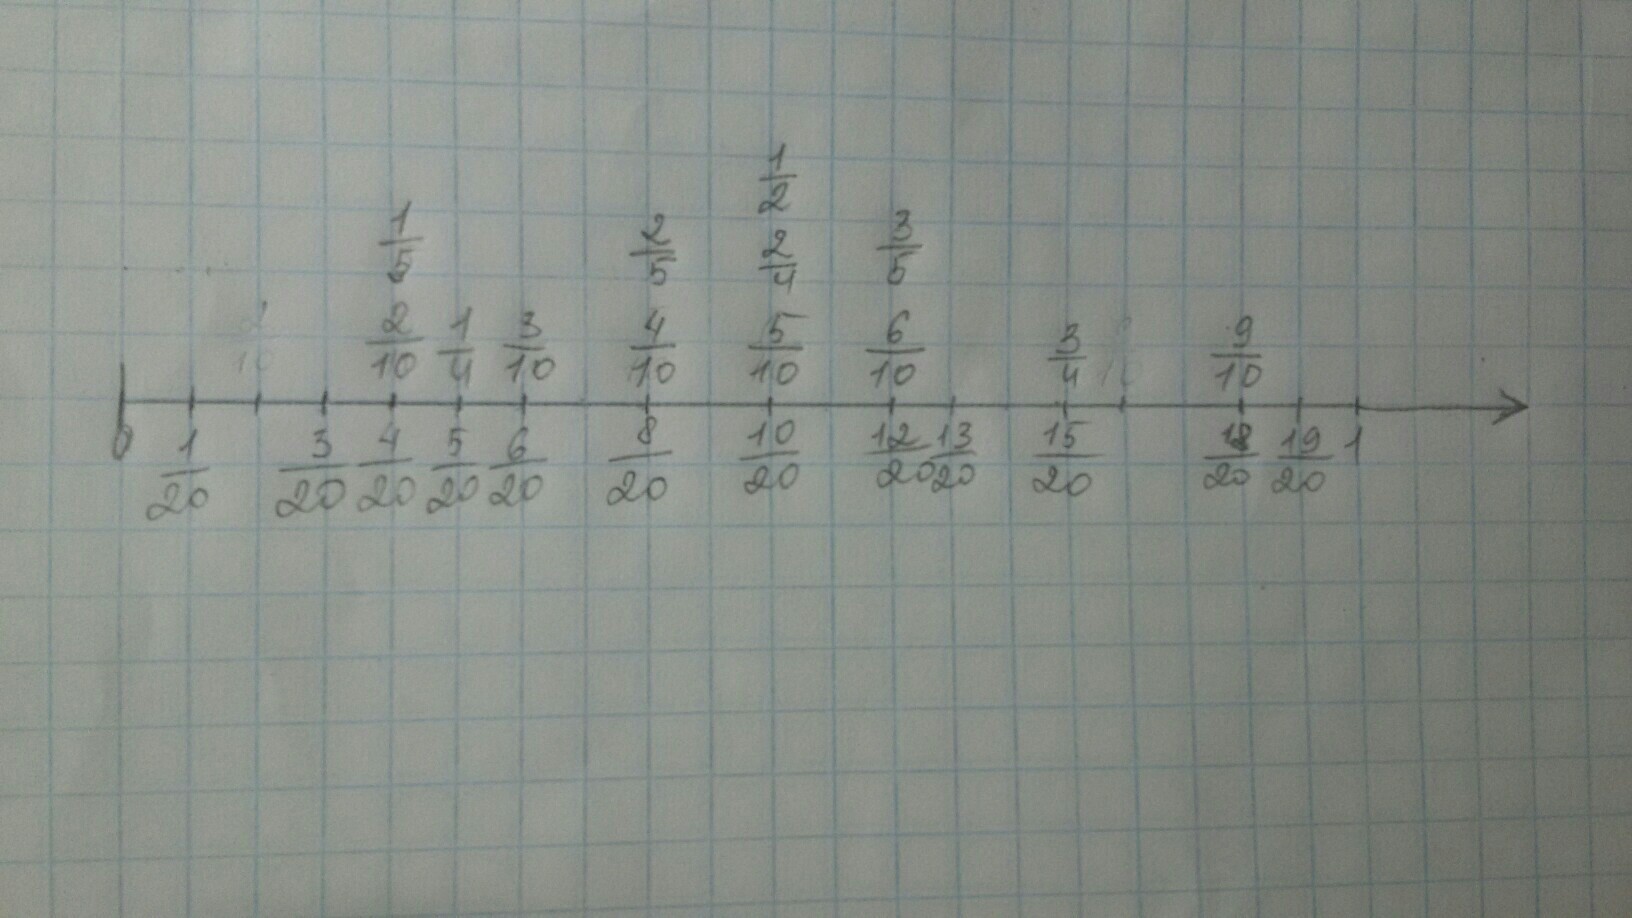 1/2
1/5 2/5 2/4 3/5
2/10 1/4 3/10 4/10 5/10 6/10 3/4 9/10
0 1/20 3/20 4/20 5/20 6/20 8/20 10/20 12/20 13/20 15/20 18/20 19/20 1